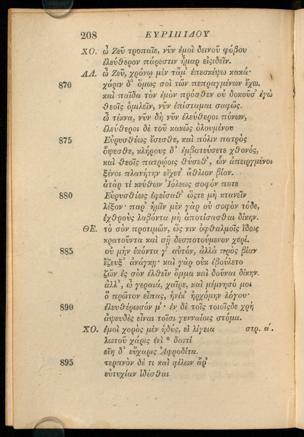 208 ΕΥΡΙΠΙΔΟΥ
ΧΟ. ὦ Ζεῦ τροπαῖε, νῦν ἐμοὶ δεινοῦ φόβου
ἐλεύθερον πάρεστιν ἦμαρ εἰσιδεῖν.
ΑΛ. ὦ Ζεῦ, χρόνῳ μὲν τἄμ' ἐπεσκέψω κακά·
870 χάριν δ' ὅμως σοι τῶν πεπραγμένων ἔχω.
καὶ παῖδα τὸν ἐμὸν πρόσθεν οὐ δοκοῦσ' ἐγὼ
θεοῖς ὁμιλεῖν, νῦν ἐπίσταμαι σαφῶς.
ὦ τέκνα, νῦν δὴ νῦν ἐλεύθεροι πόνων,
ἐλεύθεροι δὲ τοῦ κακῶς ὀλουμένου
875 Εὐρυσθέως ἔσεσθε, καὶ πόλιν πατρὸς
ὄψεσθε, κλήρους δ' ἐμβατεύσετε χθονός,
καὶ θεοῖς πατρῴοις θύσεθ', ὧν ἀπειργμένοι
ξένοι πλανήτην εἴχετ' ἄθλιον βίον.
ἀτὰρ τί κεύθων Ἰόλεως σοφόν ποτε
880 Εὐρυσθέως ἐφείσαθ' ὥστε μὴ κτανεῖν
λέξον· παρ' ἡμῖν μὲν γὰρ οὐ σοφὸν τόδε,
ἐχθροὺς λαβόντα μὴ ἀποτίσασθαι δίκην.
ΘΕ. τὸ σὸν προτιμῶν, ὥς νιν ὀφθαλμοῖς ἴδοις
κρατοῦντα καὶ σῇ δεσποτούμενον χερί.
885 οὐ μὴν ἑκόντα γ' αὐτόν, ἀλλὰ πρὸς βίαν
ἔζευξ' ἀνάγκῃ· καὶ γὰρ οὐκ ἐβούλετο
ζῶν ἐς σὸν ἐλθεῖν ὄμμα καὶ δοῦναι δίκην.
ἀλλ', ὦ γεραιά, χαῖρε, καὶ μέμνησό μοι
ὃ πρῶτον εἶπας, ἡνίκ' ἠρχόμην λόγου·
890 ἐλευθέρωσόν μ'· ἐν δὲ τοῖς τοιοῖσδε χρὴ
ἀψευδὲς εἶναι τοῖσι γενναίοις στόμα.
ΧΟ. ἐμοὶ χορὸς μὲν ἡδύς, εἰ λίγεια στρ. α'.
λωτοῦ χάρις ἐνὶ * δαιτί
εἴη δ' εὔχαρις Ἀφροδίτα.
895 τερπνὸν δέ τι καὶ φίλων ἆρ'
εὐτυχίαν ἰδέσθαι